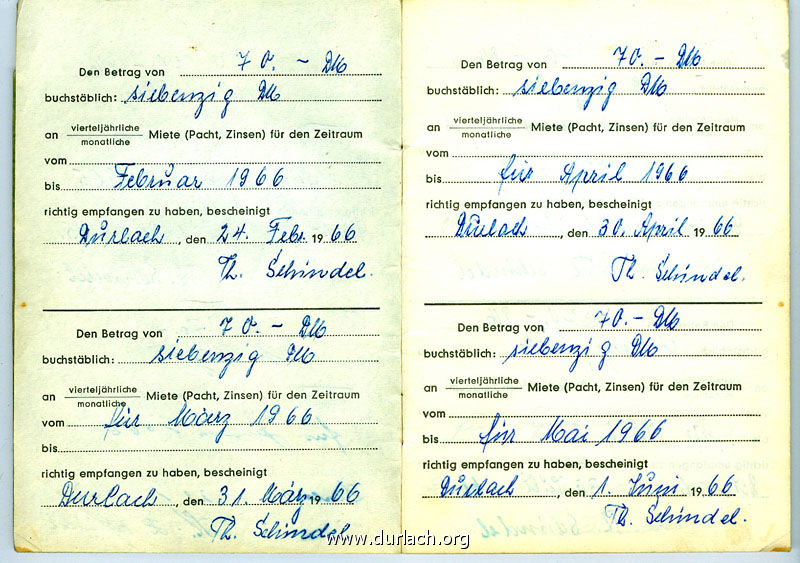 Den Betrag von 70.- DM
buchstäblich: siebenzig DM
an vierteljährliche Miete (Pacht, Zinsen) für den Zeitraum
monatliche
vom
bis Februar 1966
richtig empfangen zu haben, bescheinigt
Durlach, den 24. Febr. 1966
Th. Schindel.
Den Betrag von 70.- DM
buchstäblich: siebenzig DM
an vierteljährliche Miete (Pacht, Zinsen) für den Zeitraum
monatliche
vom für März 1966
bis
richtig empfangen zu haben, bescheinigt
Durlach, den 31. März 1966
Th. Schindel.
Den Betrag von 70.- DM
buchstäblich: siebenzig DM
an vierteljährliche Miete (Pacht, Zinsen) für den Zeitraum
monatliche
vom
bis für April 1966
richtig empfangen zu haben, bescheinigt
Durlach, den 30. April 1966
Th. Schindel.
Den Betrag von 70.- DM
buchstäblich: siebenzig DM
an vierteljährliche Miete (Pacht, Zinsen) für den Zeitraum
monatliche
vom
bis für Mai 1966
richtig empfangen zu haben, bescheinigt
Durlach, den 1. Juni 1966
Th. Schindel.
www.durlach.org